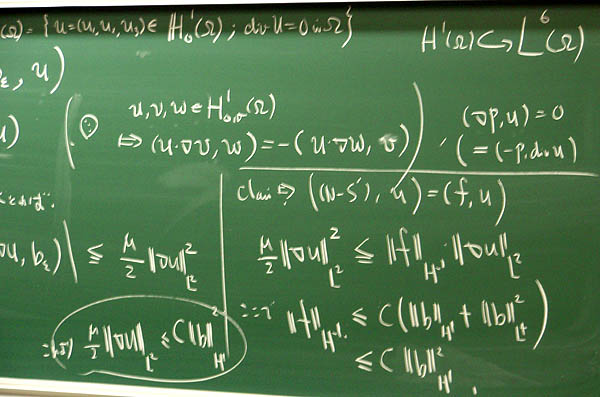 (Ω) = { u = (u₁, u₂, u₃) ∈ H₀¹(Ω) ; div u = 0 in Ω }
H¹(Ω) ↪ L⁶(Ω)
, u)
u, v, w ∈ H¹₀,σ(Ω)
⇒ (u·∇v, w) = −(u·∇w, v)
(∇p, u) = 0
(= (−p, div u)
Claim ⇒ ((N-S'), u) = (f, u)
∇u, bε)| ≤ μ/2 ‖∇u‖²_L²
μ/2 ‖∇u‖²_L² ≤ ‖f‖_H⁻¹ · ‖∇u‖_L²
‖f‖_H⁻¹ ≤ C(‖b‖_H¹ + ‖b‖²_L⁴)
≤ C ‖b‖²_H¹.
μ/2 ‖∇u‖_L² ≤ C‖b‖²_H¹